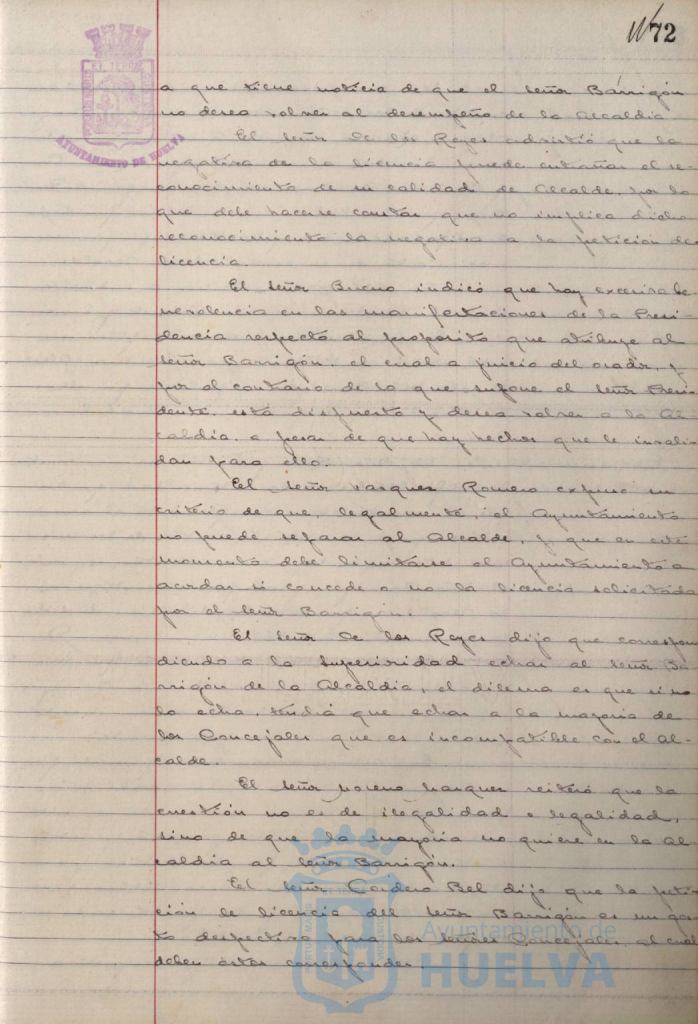 72
AYUNTAMIENTO DE HUELVA
a que tiene noticia de que el señor Barrigón
no desea volver al desempeño de la Alcaldía.
El señor de los Reyes advirtió que la
negativa de la licencia puede entrañar el re-
conocimiento de su calidad de Alcalde, por lo
que debe hacerse constar que no implica dicho
reconocimiento la negativa a la petición de
licencia.
El señor Bueno indicó que hay excesiva be-
nevolencia en las manifestaciones de la Presi-
dencia respecto al propósito que atribuye al
señor Barrigón, el cual a juicio del orador, y
por el contrario de lo que supone el señor Presi-
dente, está dispuesto y desea volver a la Al-
caldía, a pesar de que hay hechos que le invali-
dan para ello.
El señor Vazquez Romero expuso su
criterio de que, legalmente, el Ayuntamiento
no puede separar al Alcalde, y que en este
momento debe limitarse el Ayuntamiento a
acordar si concede o no la licencia solicitada
por el señor Barrigón.
El señor de los Reyes dijo que correspon
diendo a la superioridad echar al señor Ba-
rrigón de la Alcaldía, el dilema es que si no
lo echa, tendrá que echar a la mayoría de
los Concejales que es incompatible con el Al-
calde.
El señor Moreno Marquez reiteró que la
cuestión no es de ilegalidad o legalidad,
sino de que la mayoría no quiere en la Al-
caldía al señor Barrigón.
El señor Cordero Bel dijo que la peti-
ción de licencia del señor Barrigón es un ges-
to despectivo para los señores Concejales, al cual
deben éstos corresponder.
Ayuntamiento de
HUELVA